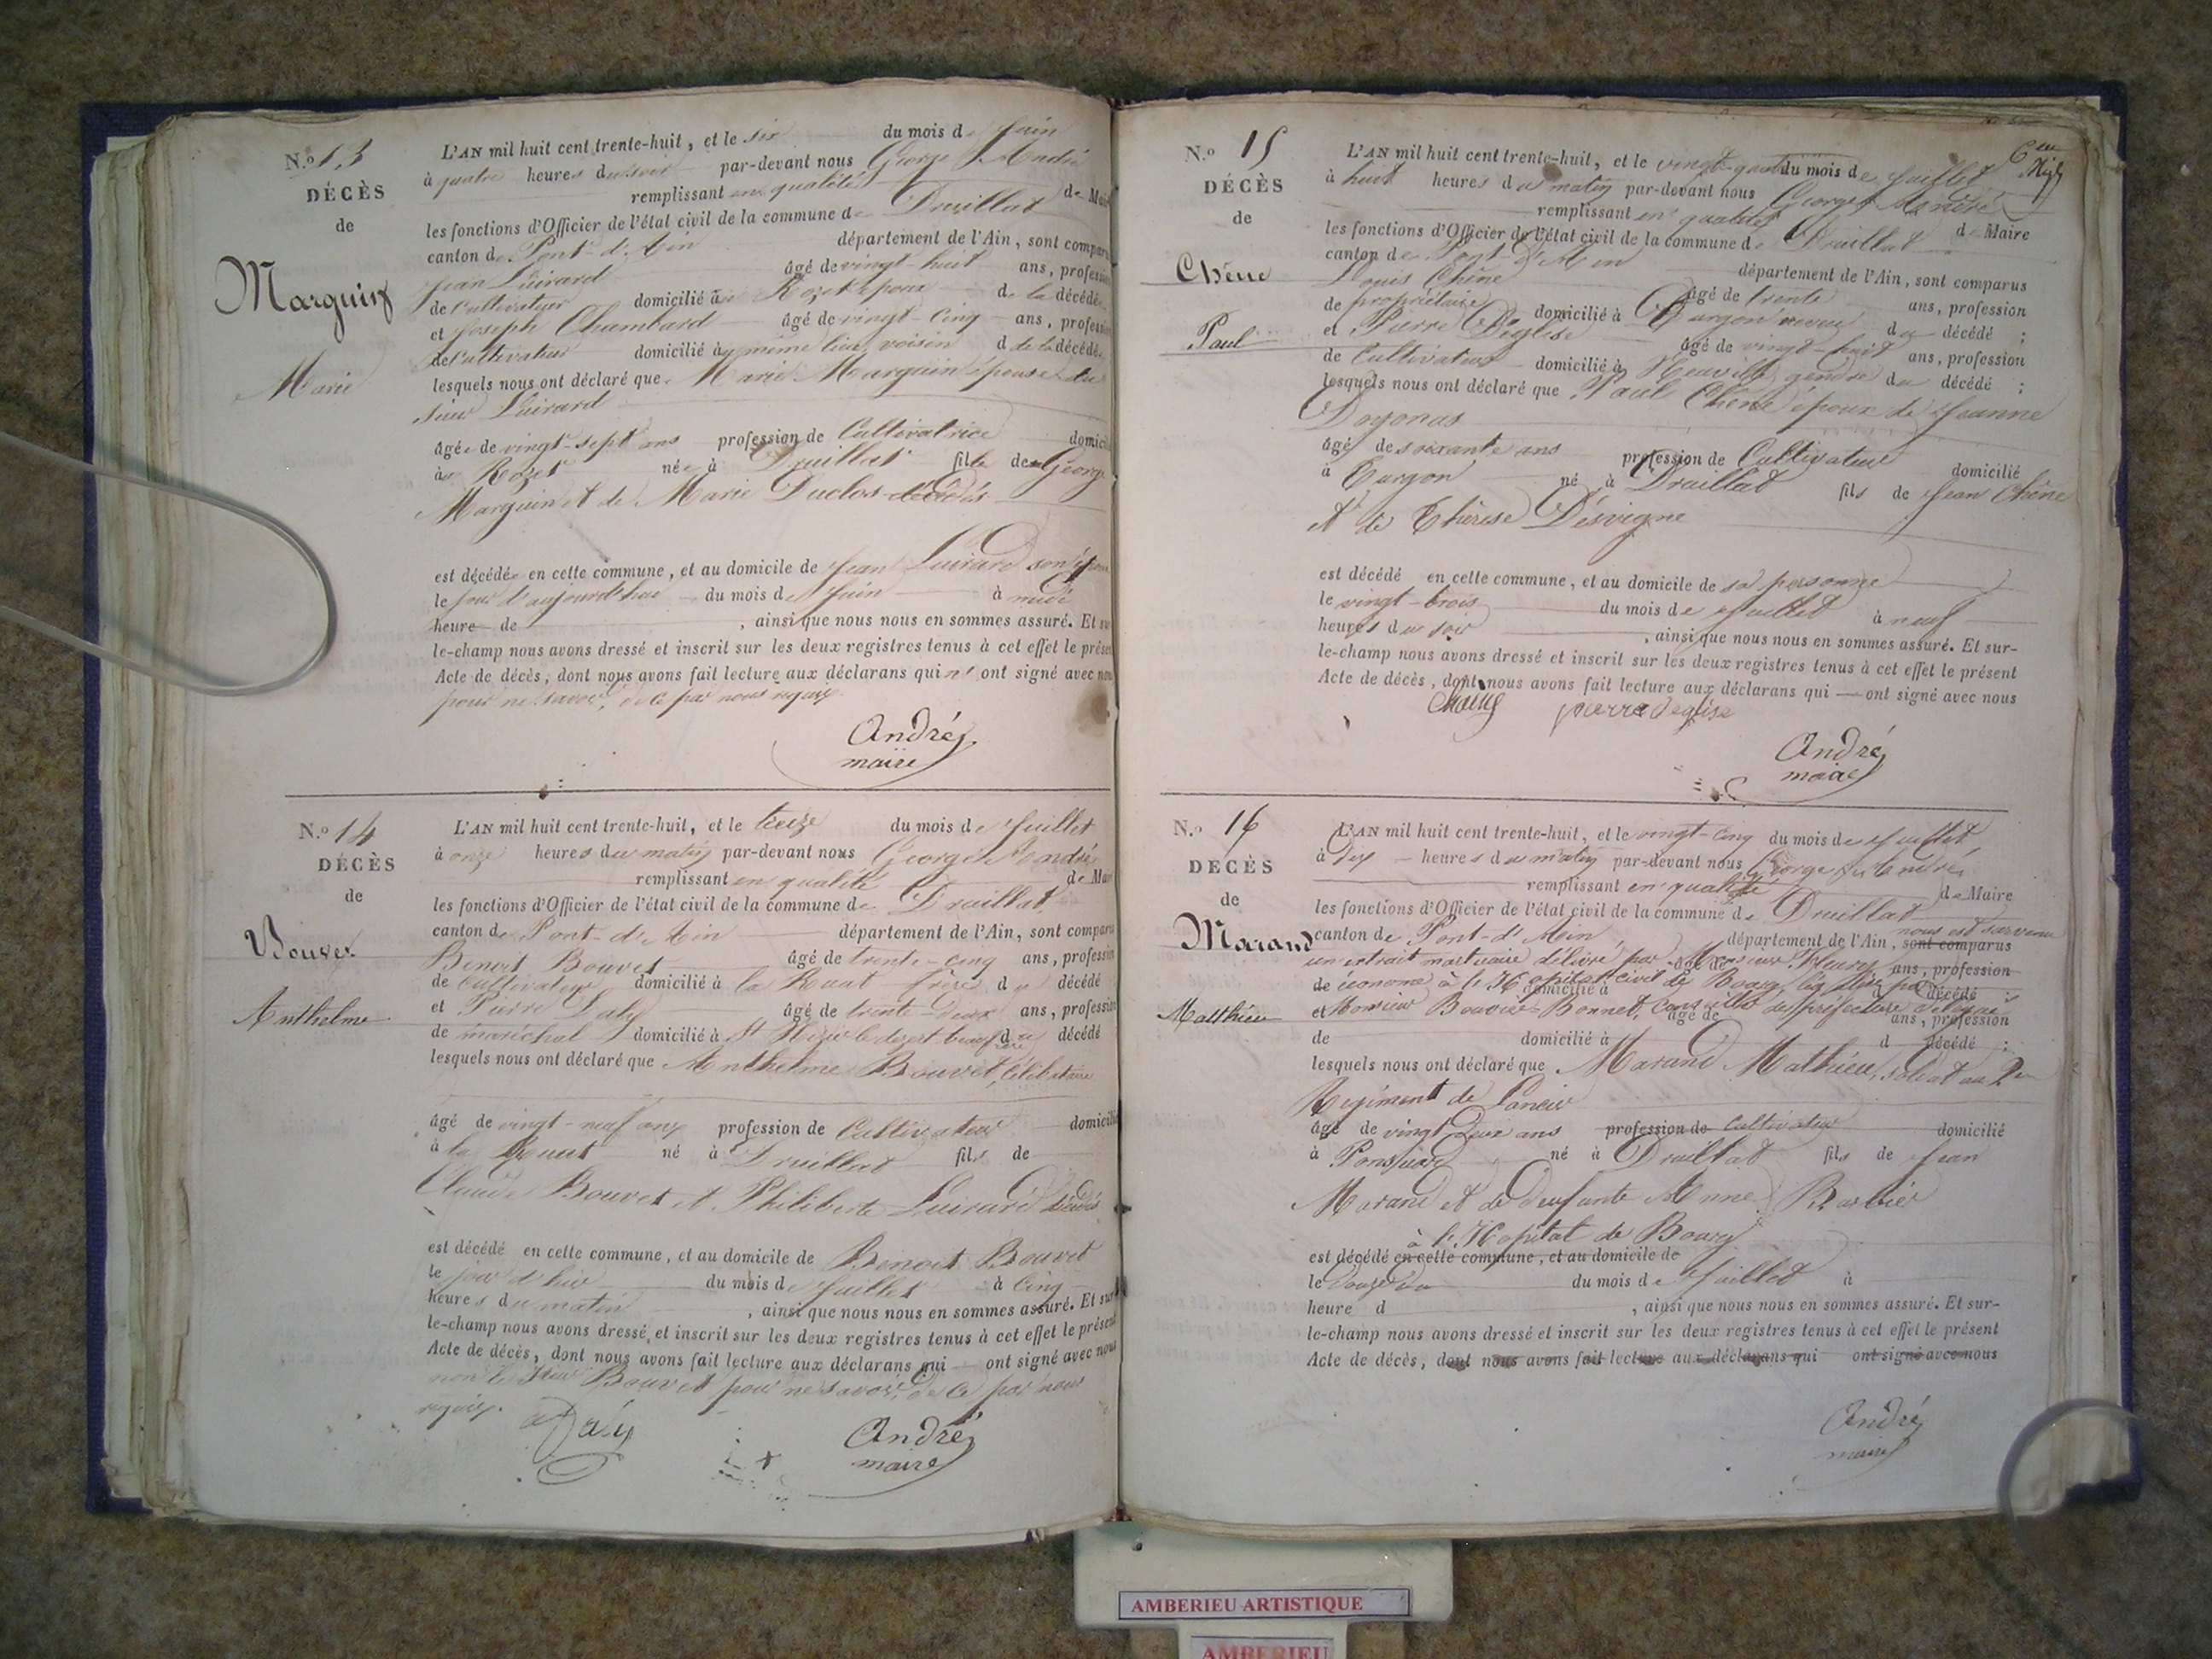 N.o 13
DÉCÈS
de
Marguin
Marie
L'AN mil huit cent trente-huit, et le six du mois de Juin
à quatre heures du soir par-devant nous George André
remplissant en qualité de Mai
les fonctions d'Officier de l'état civil de la commune de Druillat
canton de Pont-d'Ain département de l'Ain, sont compar
Jean Luirard âgé de vingt-huit ans, profession
de Cultivateur domicilié à Rozet époux de la décédée
et Joseph Chambard âgé de vingt-cinq ans, profession
de Cultivateur domicilié à même lieu, voisin d de la décédée
lesquels nous ont déclaré que Marie Marguin épouse du
sieur Luirard
âgée de vingt-sept ans profession de Cultivatrice domici
à Rozet née à Druillat fille de George
Marguin et de Marie Duclos décédés
est décédée en cette commune, et au domicile de Jean Luirard son époux
le jour d'aujourd'hui du mois de Juin à midi
heure de , ainsi que nous nous en sommes assuré. Et su
le-champ nous avons dressé et inscrit sur les deux registres tenus à cet effet le présen
Acte de décès, dont nous avons fait lecture aux déclarans qui n' ont signé avec nou
pour ne savoir, de ce par nous requis
André
maire
N.o 14
DÉCÈS
de
Bouvet
Anthelme
L'AN mil huit cent trente-huit, et le treize du mois de Juillet
à onze heures du matin par-devant nous George André
remplissant en qualité de Mai
les fonctions d'Officier de l'état civil de la commune de Druillat
canton de Pont-d'Ain département de l'Ain, sont compar
Benoit Bouvet âgé de trente-cinq ans, profession
de Cultivateur domicilié à la Ruat frère du décédé
et Pierre Daly âgé de trente-deux ans, profession
de maréchal domicilié à St Nizier le desert beau frère du décédé
lesquels nous ont déclaré que Anthelme Bouvet, Célibataire
âgé de vingt-neuf ans profession de Cultivateur domicili
à la Ruat né à Druillat fils de
Claude Bouvet et Philiberte Luirard décédés
est décédé en cette commune, et au domicile de Benoit Bouvet
le jour d'hier du mois de Juillet à Cinq
heures du matin , ainsi que nous nous en sommes assuré. Et sur
le-champ nous avons dressé et inscrit sur les deux registres tenus à cet effet le présent
Acte de décès, dont nous avons fait lecture aux déclarans qui ont signé avec nous
non le Sieur Bouvet pour ne savoir, de ce par nous
requis.
Daly
André
maire
N.o 15
DÉCÈS
de
Chêne
Paul
L'AN mil huit cent trente-huit, et le vingt-quatre du mois de Juillet
à huit heures du matin par-devant nous George André
remplissant en qualité de Maire
les fonctions d'Officier de l'état civil de la commune de Druillat
canton de Pont-d'Ain département de l'Ain, sont comparus
Louis Chêne âgé de trente ans, profession
de propriétaire domicilié à Turgon neveu du décédé ;
et Pierre Déglise âgé de vingt-huit ans, profession
de Cultivateur domicilié à Neuville gendre du décédé ;
lesquels nous ont déclaré que Paul Chêne époux de Jeanne
Doyonas
âgé de soixante ans profession de Cultivateur domicilié
à Turgon né à Druillat fils de Jean Chêne
et de Thérèse Désvigne
est décédé en cette commune, et au domicile de sa personne
le vingt-trois du mois de Juillet à neuf
heures du soir , ainsi que nous nous en sommes assuré. Et sur-
le-champ nous avons dressé et inscrit sur les deux registres tenus à cet effet le présent
Acte de décès, dont nous avons fait lecture aux déclarans qui ont signé avec nous
pierre deglise
André
maire
N.o 16
DÉCÈS
de
Marand
Matthieu
L'AN mil huit cent trente-huit, et le vingt-cinq du mois de Juillet
à dix heures du matin par-devant nous George André
remplissant en qualité de Maire
les fonctions d'Officier de l'état civil de la commune de Druillat
canton de Pont-d'Ain département de l'Ain, sont comparus nous est parvenu
un extrait mortuaire délivré par Monsieur Fleury âgé de ans, profession
de économe à l'Hopital civil de Bourg, domicilié à d décédé ;
et Monsieur Bouvier-Bonnet, Conseiller de préfecture délégué âgé de ans, profession
de domicilié à d décédé ;
lesquels nous ont déclaré que Marand Mathieu, soldat au 2me
Régiment de Lancier
âgé de vingt deux ans profession de Cultivateur domicilié
à né à Druillat fils de Jean
Marand et de defunte Anne Barbier
à l'Hopital de Bourg
est décédé en cette commune, et au domicile de
le douze du du mois de Juillet à
heure d , ainsi que nous nous en sommes assuré. Et sur-
le-champ nous avons dressé et inscrit sur les deux registres tenus à cet effet le présent
Acte de décès, dont nous avons fait lecture aux déclarans qui ont signé avec nous
André
maire
AMBERIEU ARTISTIQUE
AMBERIEU